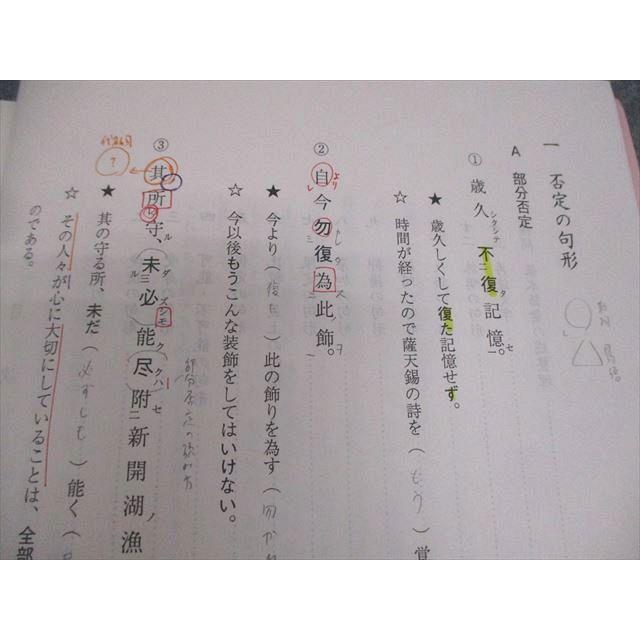 一 否定の句形
A 部分否定
① 歳久シクシテ不二復タ記憶一セ。
★ 歳久しくして復た記憶せず。
☆ 時間が経ったので薩天錫の詩を（もう）覚
② 自レより今勿三カレ復タ為二スコト此ノ飾一ヲ。
★ 今より（復た）此の飾りを為す（勿かれ
☆ 今以後もうこんな装飾をしてはいけない。
③ 其ノ所レ守ル、未ダ三必ズシモ能ク尽クハ附二セ新開湖ノ漁
代名詞
？
部分否定の読み方
★ 其の守る所、未だ（必ずしも）能く（
☆ その人々が心に大切にしていることは、全部
のである。